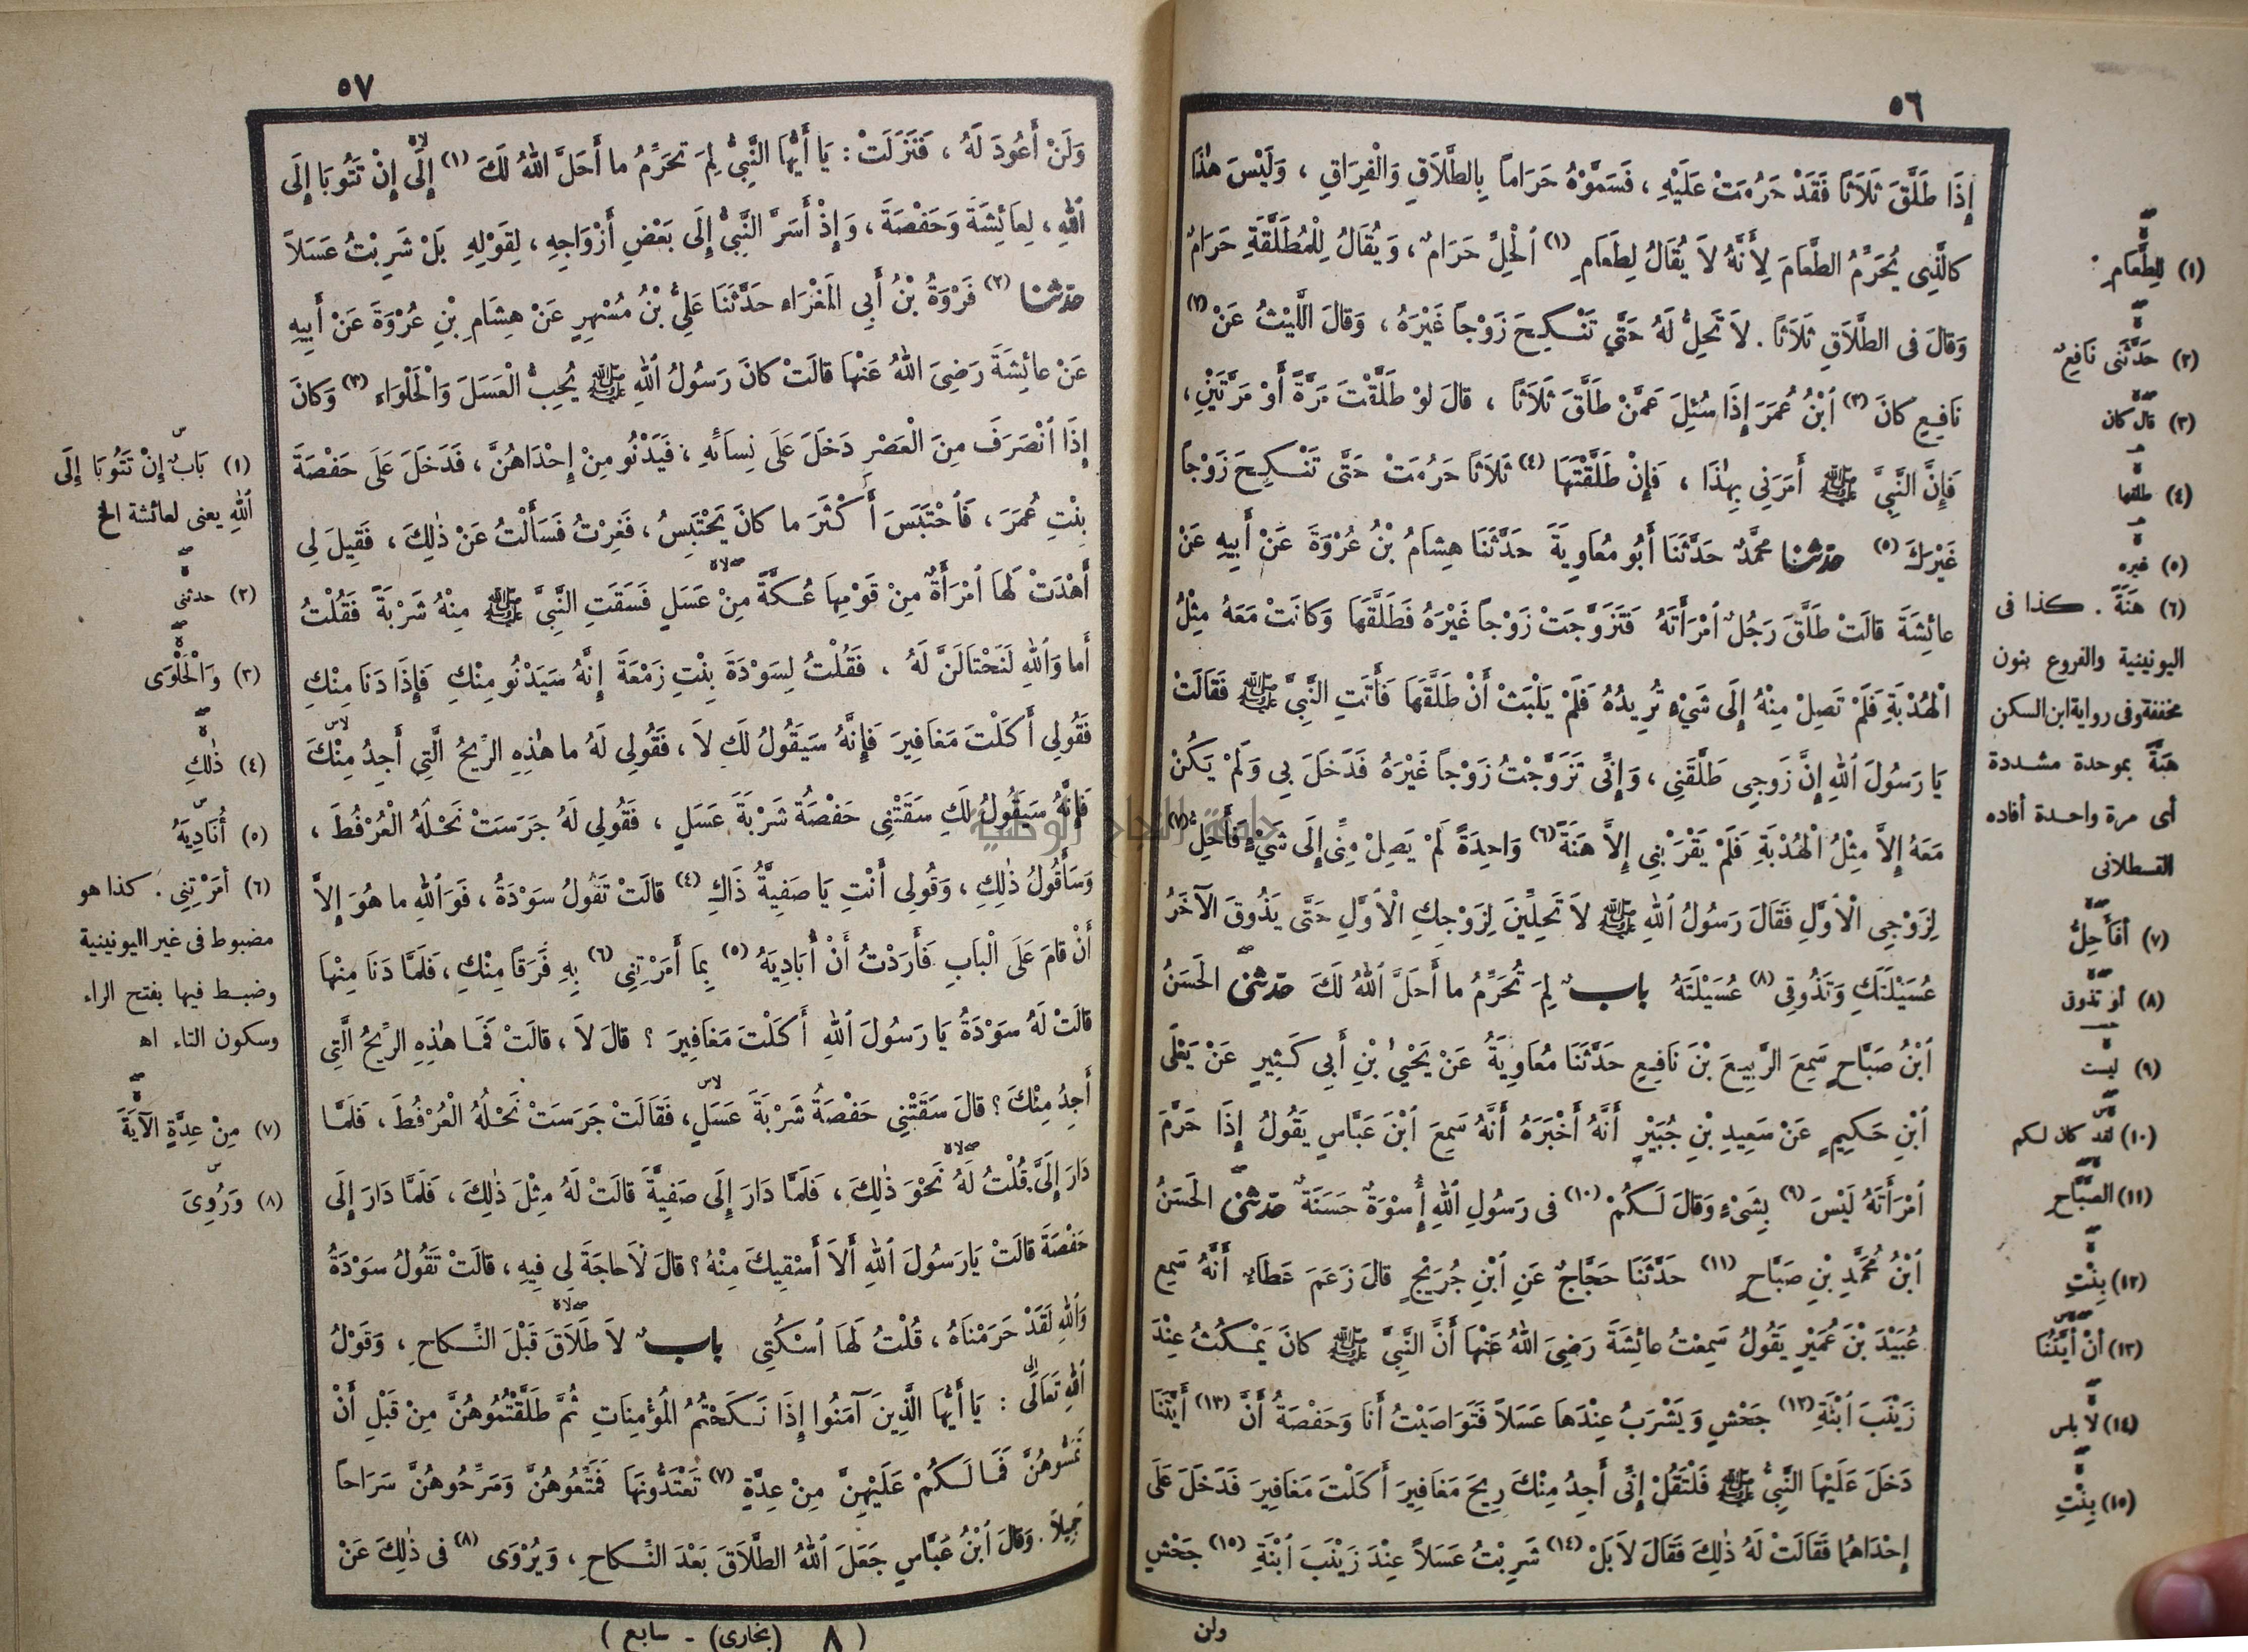 ٥٦
إِذَا طَلَّقَ ثَلَاثًا فَقَدْ حَرُمَتْ عَلَيْهِ ، فَسَمَّوْهُ حَرَاماً بِالطَّلَاقِ وَالْفِرَاقِ ، وَلَيْسَ هٰذَا
كَالَّذِى يُحَرِّمُ الطَّعَامَ لِأَنَّهُ لاَ يُقَالُ لِطَعَامِ (١) الْحِلِّ حَرَامٌ ، وَيُقَالُ لِلْمُطَلَّقَةِ حَرَامٌ
وَقَالَ فى الطَّلَاقِ ثَلَاثًا . لاَ تَحِلُّ لَهُ حَتَّى تَنْكِحَ زَوْجاً غَيْرَهُ ، وَقَالَ اللَّيْثُ عَنْ (٢)
نَافِعٍ كانَ (٣) ابْنُ عُمَرَ إِذَا سُئِلَ عَمَّنْ طَلَّقَ ثَلَاثًا ، قالَ لَوْ طَلَّقْتَ مَرَّةً أَوْ مَرَّتَيْنِ ،
فَإِنَّ النَّبِيَّ ﷺ أَمَرَنِي بِهٰذَا ، فَإِنْ طَلَّقْتَهَا (٤) ثَلَاثًا حَرُمَتْ حَتَّى تَنْكِحَ زَوْجاً
غَيْرَكَ (٥) حدثنا مُحَمَّدٌ حَدَّثَنَا أَبُو مُعَاوِيَةَ حَدَّثَنَا هِشَامُ بْنُ عُرْوَةَ عَنْ أَبِيهِ عَنْ
عائِشَةَ قالَتْ طَلَّقَ رَجُلٌ امْرَأَتَهُ فَتَزَوَّجَتْ زَوْجاً غَيْرَهُ فَطَلَّقَهَا وَكانَتْ مَعَهُ مِثْلُ
الْهُدْبَةِ فَلَمْ تَصِلْ مِنْهُ إِلَى شَيْءٍ تُرِيدُهُ فَلَمْ يَلْبَثْ أَنْ طَلَّقَهَا فَأَتَتِ النَّبِيَّ ﷺ فَقَالَتْ
يَا رَسُولَ اللهِ إِنَّ زَوجِى طَلَّقَنِى ، وَإِنِّى تَزَوَّجْتُ زَوْجاً غَيْرَهُ فَدَخَلَ بِي وَلَمْ يَكُنْ
مَعَهُ إِلاَّ مِثْلُ الْهُدْبَةِ فَلَمْ يَقْرَبْنِى إِلاَّ هَنَةً (٦) وَاحِدَةً لَمْ يَصِلْ مِنِّى إِلَى شَيْءٍ فَأَحِلُّ (٧)
لِزَوْجِى الْأَوَّلِ فَقَالَ رَسُولُ اللهِ ﷺ لاَ تَحِلِّينَ لِزَوْجِكِ الْأَوَّلِ حَتَّى يَذُوقَ الآخَرُ
عُسَيْلَتَكِ وَتَذُوقِى (٨) عُسَيْلَتَهُ باب لِمَ تُحَرِّمُ ما أَحَلَّ اللهُ لَكَ حدثنى الحَسَنُ
ابْنُ صَبَّاحٍ سَمِعَ الرَّبِيعَ بْنَ نَافِعٍ حَدَّثَنَا مُعَاوِيَةُ عَنْ يَحْيَى بْنِ أَبِى كَثِيرٍ عَنْ يَعْلَى
ابْنِ حَكِيمٍ عَنْ سَعِيدِ بْنِ جُبَيْرٍ أَنَّهُ أَخْبَرَهُ أَنَّهُ سَمِعَ ابْنَ عَبَّاسٍ يَقُولُ إِذَا حَرَّمَ
امْرَأَتَهُ لَيْسَ (٩) بِشَىْءٍ وَقالَ لَكُمْ (١٠) فى رَسُولِ اللهِ أُسْوَةٌ حَسَنَةٌ حدثنى الحَسَنُ
ابْنُ مُحَمَّدِ بْنِ صَبَّاحٍ (١١) حَدَّثَنَا حَجَّاجٌ عَنِ ابْنِ جُرَيْجٍ قالَ زَعَمَ عَطَاءٌ أَنَّهُ سَمِعَ
عُبَيْدَ بْنَ عُمَيْرٍ يَقُولُ سَمِعْتُ عائِشَةَ رَضِىَ اللهُ عَنْهَا أَنَّ النَّبِيَّ ﷺ كانَ يَمْكُثُ عِنْدَ
زَيْنَبَ ابْنَةِ (١٢) جَحْشٍ وَيَشْرَبُ عِنْدَهَا عَسَلاً فَتَوَاصَيْتُ أَنَا وَحَفْصَةُ أَنَّ (١٣) أَيَّتَنَا
دَخَلَ عَلَيْهَا النَّبِيُّ ﷺ فَلْتَقُلْ إِنِّى أَجِدُ مِنْكَ رِيحَ مَغَافِيرَ أَكَلْتَ مَغَافِيرَ فَدَخَلَ عَلَى
إِحْدَاهُمَا فَقَالَتْ لَهُ ذٰلِكَ فَقَالَ لاَ بَلْ (١٤) شَرِبْتُ عَسَلاً عِنْدَ زَيْنَبَ ابْنَةِ (١٥) جَحْشٍ
ولن
(١) لِلطَّعَامِ
(٢) حَدَّثَنِى نَافِعٌ
(٣) قال كان
(٤) طلقها
(٥) غيره
(٦) هَنَةً . كذا فى
اليونينية والفروع بنون
مخففة وفى رواية ابن السكن
هَبَّةً بموحدة مشددة
أى مرة واحدة أفاده
القسطلانى
(٧) أَفَأَحِلُّ
(٨) أو تذوق
(٩) ليست
(١٠) لقد كان لكم
(١١) الصَّبَّاحِ
(١٢) بِنْتِ
(١٣) أَنْ أَيَّتُنَا
(١٤) لا بأس
(١٥) بِنْتِ
٥٧
وَلَنْ أَعُودَ لَهُ ، فَنَزَلَتْ : يَا أَيُّهَا النَّبِيُّ لِمَ تُحَرِّمُ ما أَحَلَّ اللهُ لَكَ (١) إِلَى إِنْ تَتُوبَا إِلَى
اللهِ ، لِعَائِشَةَ وَحَفْصَةَ ، وَإِذْ أَسَرَّ النَّبِيُّ إِلَى بَعْضِ أَزْوَاجِهِ ، لِقَوْلِهِ بَلْ شَرِبْتُ عَسَلاً
حدثنا (٢) فَرْوَةُ بْنُ أَبِي المَغْرَاءِ حَدَّثَنَا عَلِيُّ بْنُ مُسْهِرٍ عَنْ هِشَامِ بْنِ عُرْوَةَ عَنْ أَبِيهِ
عَنْ عائِشَةَ رَضِىَ اللهُ عَنْهَا قالَتْ كانَ رَسُولُ اللهِ ﷺ يُحِبُّ الْعَسَلَ وَالْحَلْوَاءَ (٣) وَكانَ
إِذَا انْصَرَفَ مِنَ الْعَصْرِ دَخَلَ عَلَى نِسَائِهِ ، فَيَدْنُو مِنْ إِحْدَاهُنَّ ، فَدَخَلَ عَلَى حَفْصَةَ
بِنْتِ عُمَرَ ، فَاحْتَبَسَ أَكْثَرَ ما كانَ يَحْتَبِسُ ، فَغِرْتُ فَسَأَلْتُ عَنْ ذٰلِكَ ، فَقِيلَ لِي
أَهْدَتْ لَهَا امْرَأَةٌ مِنْ قَوْمِهَا عُكَّةً مِنْ عَسَلٍ فَسَقَتِ النَّبِيَّ ﷺ مِنْهُ شَرْبَةً فَقُلْتُ
أَما وَاللهِ لَنَحْتَالَنَّ لَهُ ، فَقُلْتُ لِسَوْدَةَ بِنْتِ زَمْعَةَ إِنَّهُ سَيَدْنُو مِنْكِ فَإِذَا دَنَا مِنْكِ
فَقُولِى أَكَلْتَ مَغَافِيرَ فَإِنَّهُ سَيَقُولُ لَكِ لاَ ، فَقُولِى لَهُ ما هٰذِهِ الرِّيحُ الَّتِي أَجِدُ مِنْكَ
فَإِنَّهُ سَيَقُولُ لَكِ سَقَتْنِى حَفْصَةُ شَرْبَةَ عَسَلٍ ، فَقُولِى لَهُ جَرَسَتْ نَحْلُهُ الْعُرْفُطَ ،
وَسَأَقُولُ ذٰلِكِ ، وَقُولِى أَنْتِ يَا صَفِيَّةُ ذَاكِ (٤) قالَتْ تَقُولُ سَوْدَةُ ، فَوَاللهِ ما هُوَ إِلاَّ
أَنْ قامَ عَلَى الْبَابِ فَأَرَدْتُ أَنْ أُبَادِيَهُ (٥) بِمَا أَمَرْتِنِى (٦) بِهِ فَرَقًا مِنْكِ ، فَلَمَّا دَنَا مِنْهَا
قالَتْ لَهُ سَوْدَةُ يَا رَسُولَ اللهِ أَكَلْتَ مَغَافِيرَ ؟ قالَ لاَ ، قالَتْ فَمَا هٰذِهِ الرِّيحُ الَّتِى
أَجِدُ مِنْكَ ؟ قالَ سَقَتْنِى حَفْصَةُ شَرْبَةَ عَسَلٍ ، فَقَالَتْ جَرَسَتْ نَحْلُهُ الْعُرْفُطَ ، فَلَمَّا
دَارَ إِلَىَّ قُلْتُ لَهُ نَحْوَ ذٰلِكَ ، فَلَمَّا دَارَ إِلَى صَفِيَّةَ قالَتْ لَهُ مِثْلَ ذٰلِكَ ، فَلَمَّا دَارَ إِلَى
حَفْصَةَ قالَتْ يَا رَسُولَ اللهِ أَلاَ أَسْقِيكَ مِنْهُ ؟ قالَ لاَ حاجَةَ لِى فِيهِ ، قالَتْ تَقُولُ سَوْدَةُ
وَاللهِ لَقَدْ حَرَمْنَاهُ ، قُلْتُ لَهَا اسْكُتِى باب لاَ طَلَاقَ قَبْلَ النِّكاحِ ، وَقَوْلُ
اللهِ تَعَالَى : يَا أَيُّهَا الَّذِينَ آمَنُوا إِذَا نَكَحْتُمُ المُؤْمِنَاتِ ثُمَّ طَلَّقْتُمُوهُنَّ مِنْ قَبْلِ أَنْ
تَمَسُّوهُنَّ فَمَا لَكُمْ عَلَيْهِنَّ مِنْ عِدَّةٍ (٧) تَعْتَدُّونَهَا فَمَتِّعُوهُنَّ وَسَرِّحُوهُنَّ سَرَاحاً
جَمِيلاً . وَقالَ ابْنُ عَبَّاسٍ جَعَلَ اللهُ الطَّلَاقَ بَعْدَ النِّكاحِ ، وَيُرْوَى (٨) فى ذٰلِكَ عَنْ
( ٨ (بخارى) - سابع )
(١) بَابٌ إِنْ تَتُوبَا إِلَى
اللهِ يعنى لعائشة الخ
(٢) حدثنى
(٣) وَالْحَلْوَى
(٤) ذٰلِكِ
(٥) أُنَادِيَهُ
(٦) أمَرْتِنِى . كذا هو
مضبوط فى غير اليونينية
وضبط فيها بفتح الراء
وسكون التاء اه
(٧) مِنْ عِدَّةٍ الآيَةَ
(٨) وَرُوِىَ
جامعة النجاح الوطنية